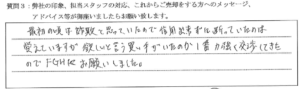 質問3:弊社の印象、担当スタッフの対応、これからご売却をする方へのメッセージ、
アドバイス等が御座いましたらお願い致します。
最初の頃は詐欺と思っていたので信用出来ずに断っていたのは
覚えていますが 欲しいと言う買い手がいたのか1番強く交渉してきた
のでFGHにお願いしました。